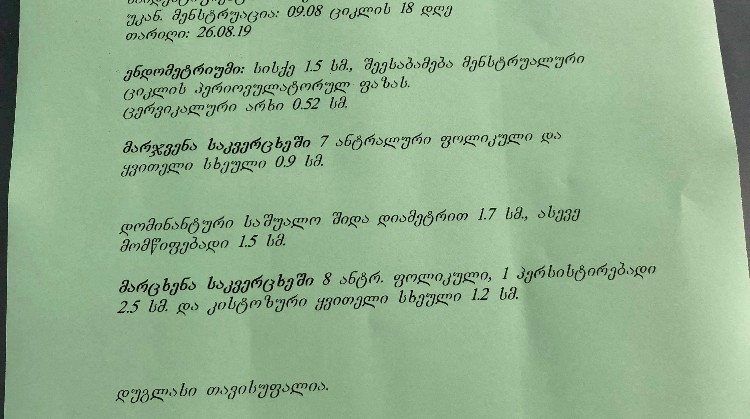 უკან. მენსტრუაცია: 09.08 ციკლის 18 დღე
თარიღი: 26.08.19
ენდომეტრიუმი: სისქე 1.5 სმ., შეესაბამება მენსტრუალური
ციკლის პერიოვულატორულ ფაზას.
ცერვიკალური არხი 0.52 სმ.
მარჯვენა საკვერცხეში 7 ანტრალური ფოლიკული და
ყვითელი სხეული 0.9 სმ.
დომინანტური საშუალო შიდა დიამეტრით 1.7 სმ., ასევე
მომწიფებადი 1.5 სმ.
მარცხენა საკვერცხეში 8 ანტრ. ფოლიკული, 1 პერსისტირებადი
2.5 სმ. და კისტოზური ყვითელი სხეული 1.2 სმ.
დუგლასი თავისუფალია.